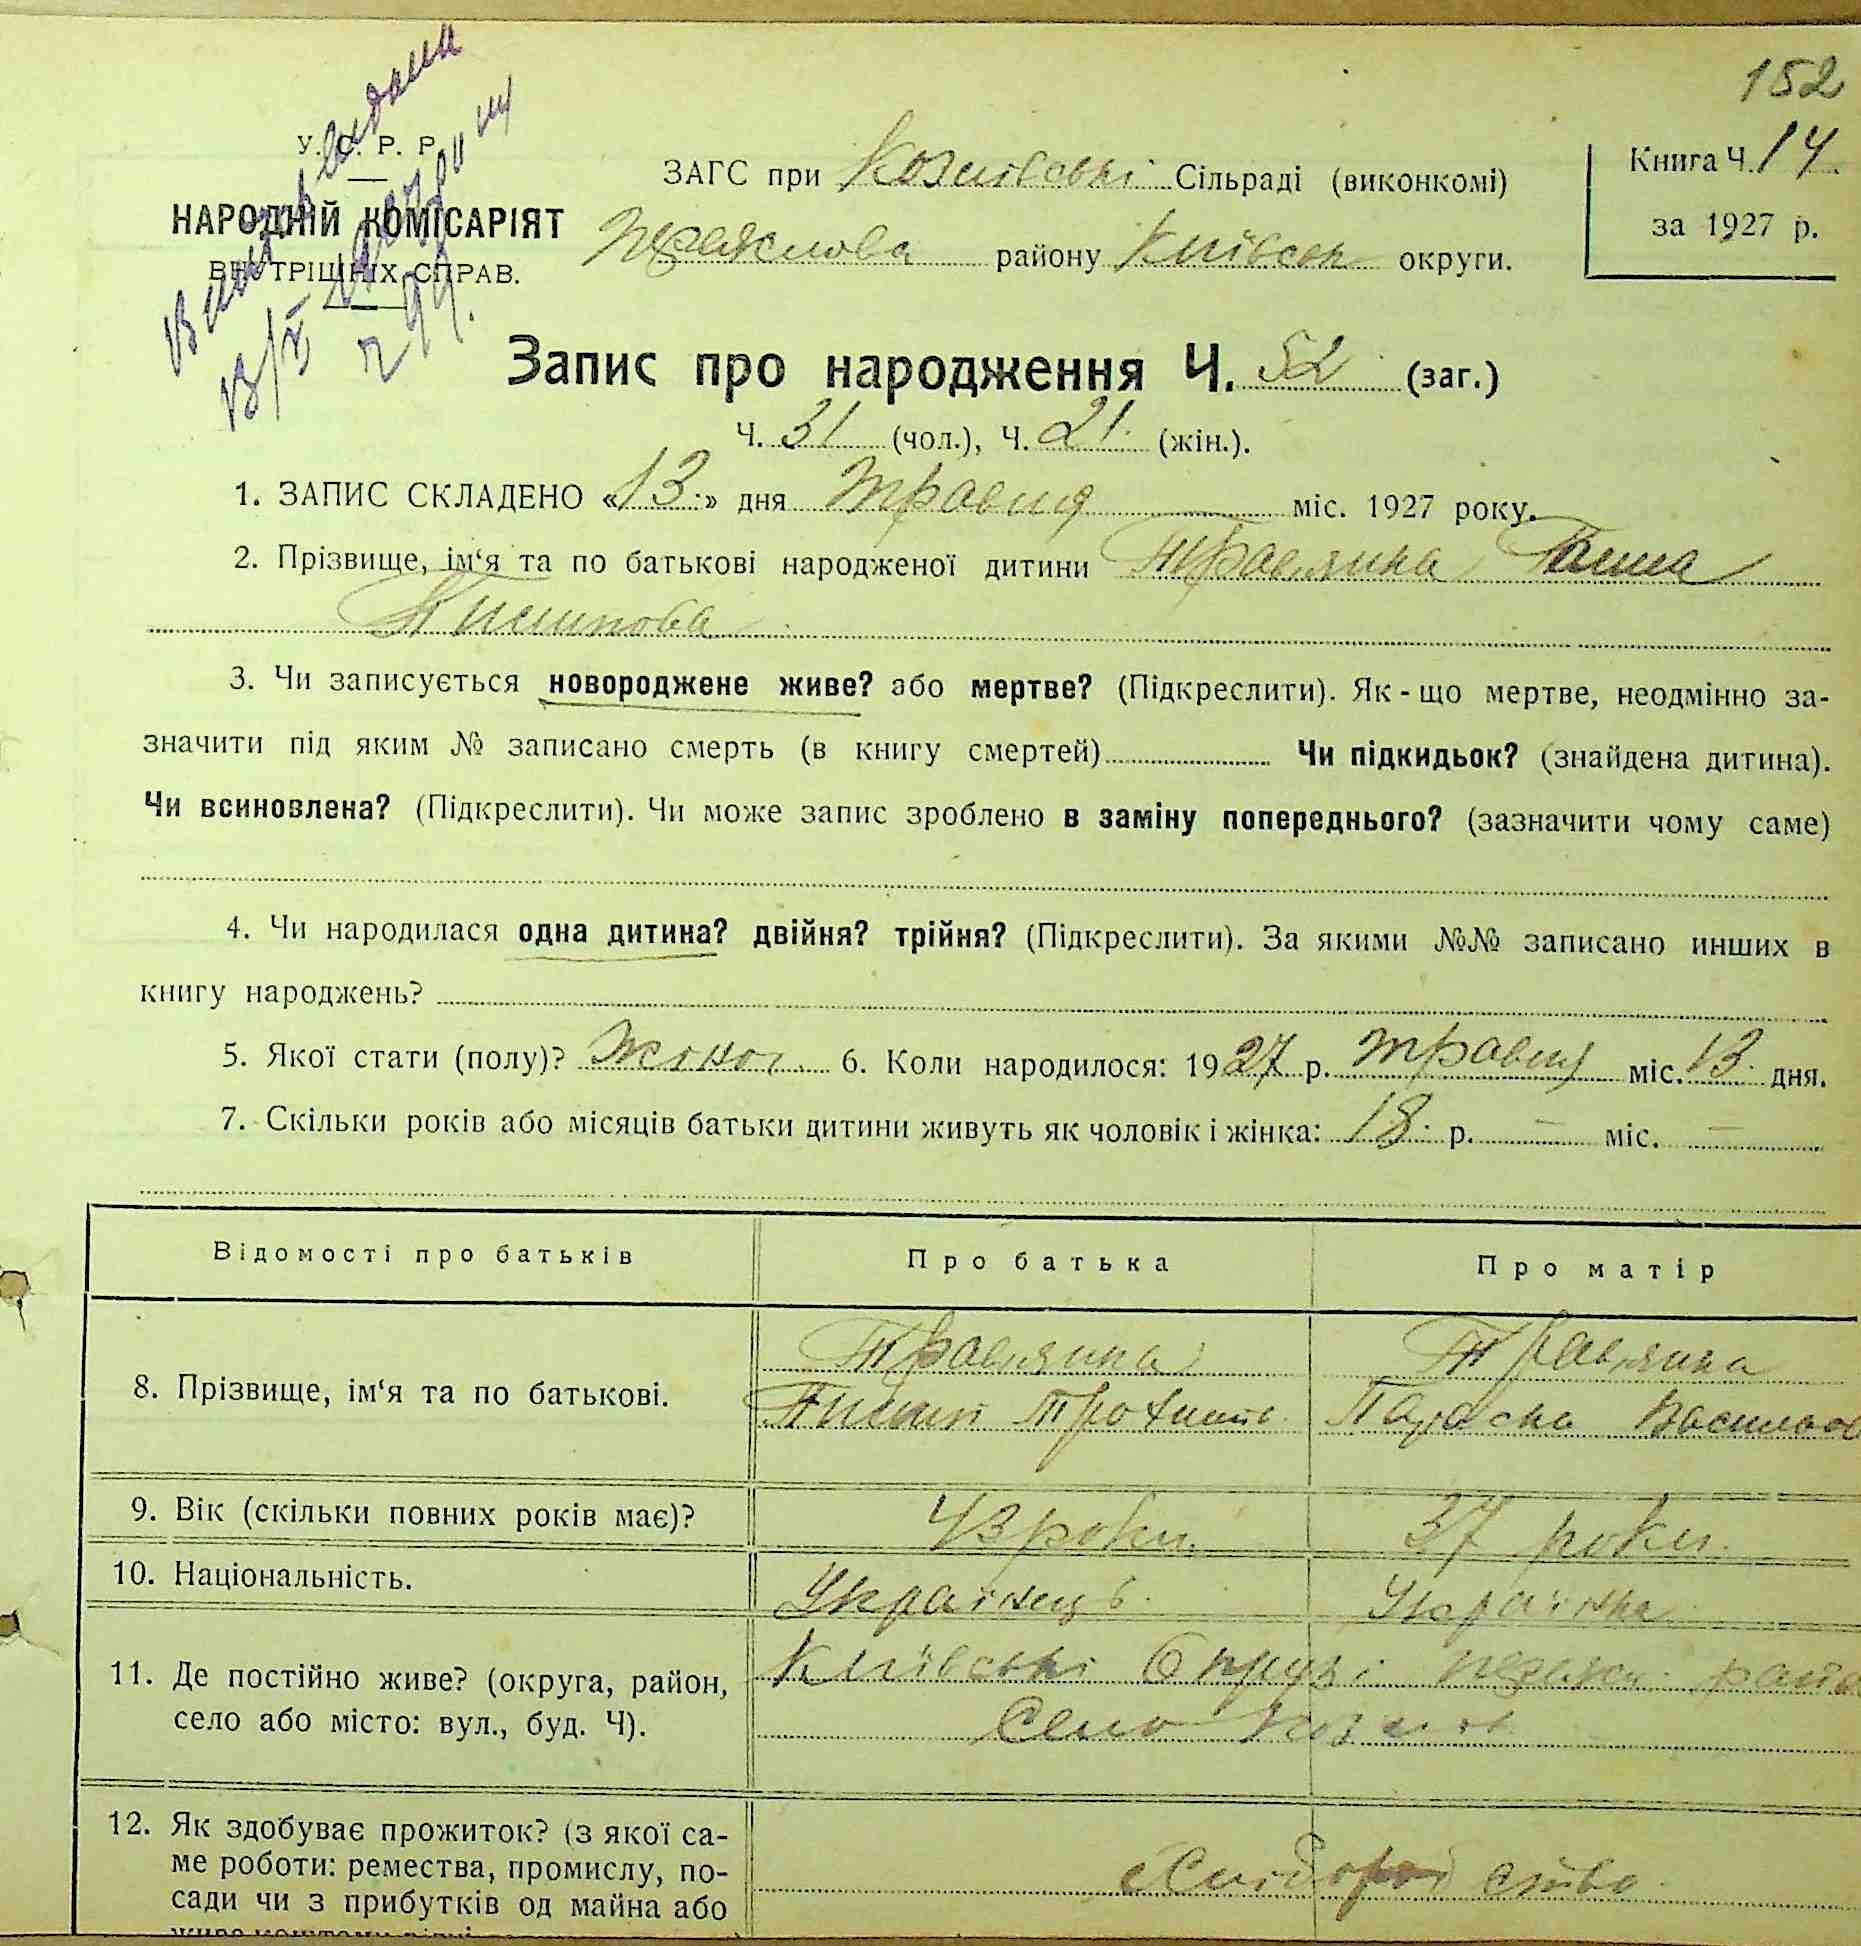 152
У. С. Р. Р.
НАРОДНІЙ КОМІСАРІЯТ
ВНУТРІШНІХ СПРАВ.
ЗАГС при Козинські Сільраді (виконкомі)
району Київськ округи.
Книга Ч. 14.
за 1927 р.
Запис про народження Ч. 52 (заг.)
Ч. 31 (чол.), Ч. 21. (жін.).
1. ЗАПИС СКЛАДЕНО «13» дня Травня міс. 1927 року.
2. Прізвище, ім‘я та по батькові народженої дитини Травянина Ганна
Пилипова
3. Чи записується новороджене живе? або мертве? (Підкреслити). Як-що мертве, неодмінно за-
значити під яким № записано смерть (в книгу смертей) Чи підкидьок? (знайдена дитина).
Чи всиновлена? (Підкреслити). Чи може запис зроблено в заміну попереднього? (зазначити чому саме)
4. Чи народилася одна дитина? двійня? трійня? (Підкреслити). За якими №№ записано инших в
книгу народжень?
5. Якої стати (полу)? Жіноч. 6. Коли народилося: 1927 р. травня міс. 13 дня.
7. Скільки років або місяців батьки дитини живуть як чоловік і жінка: 18 р. — міс. —
Відомості про батьків Про батька Про матір
8. Прізвище, ім‘я та по батькові. Травянина Травянина
Пилип Трохимів Параска Васильов
9. Вік (скільки повних років має)? 43 роки 37 роки.
10. Національність. Українець Українка
11. Де постійно живе? (округа, район, Київські Окрузі район
село або місто: вул., буд. Ч). Село
12. Як здобуває прожиток? (з якої са-
ме роботи: ремества, промислу, по- Хліборобство
сади чи з прибутків од майна або